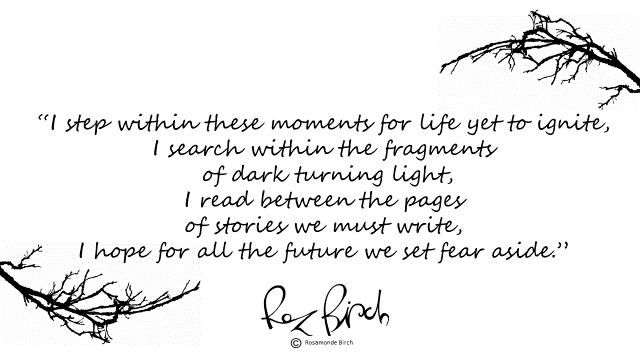 “I step within these moments for life yet to ignite,
I search within the fragments
of dark turning light,
I read between the pages
of stories we must write,
I hope for all the future we set fear aside.”
Roz Birch
© Rosamonde Birch